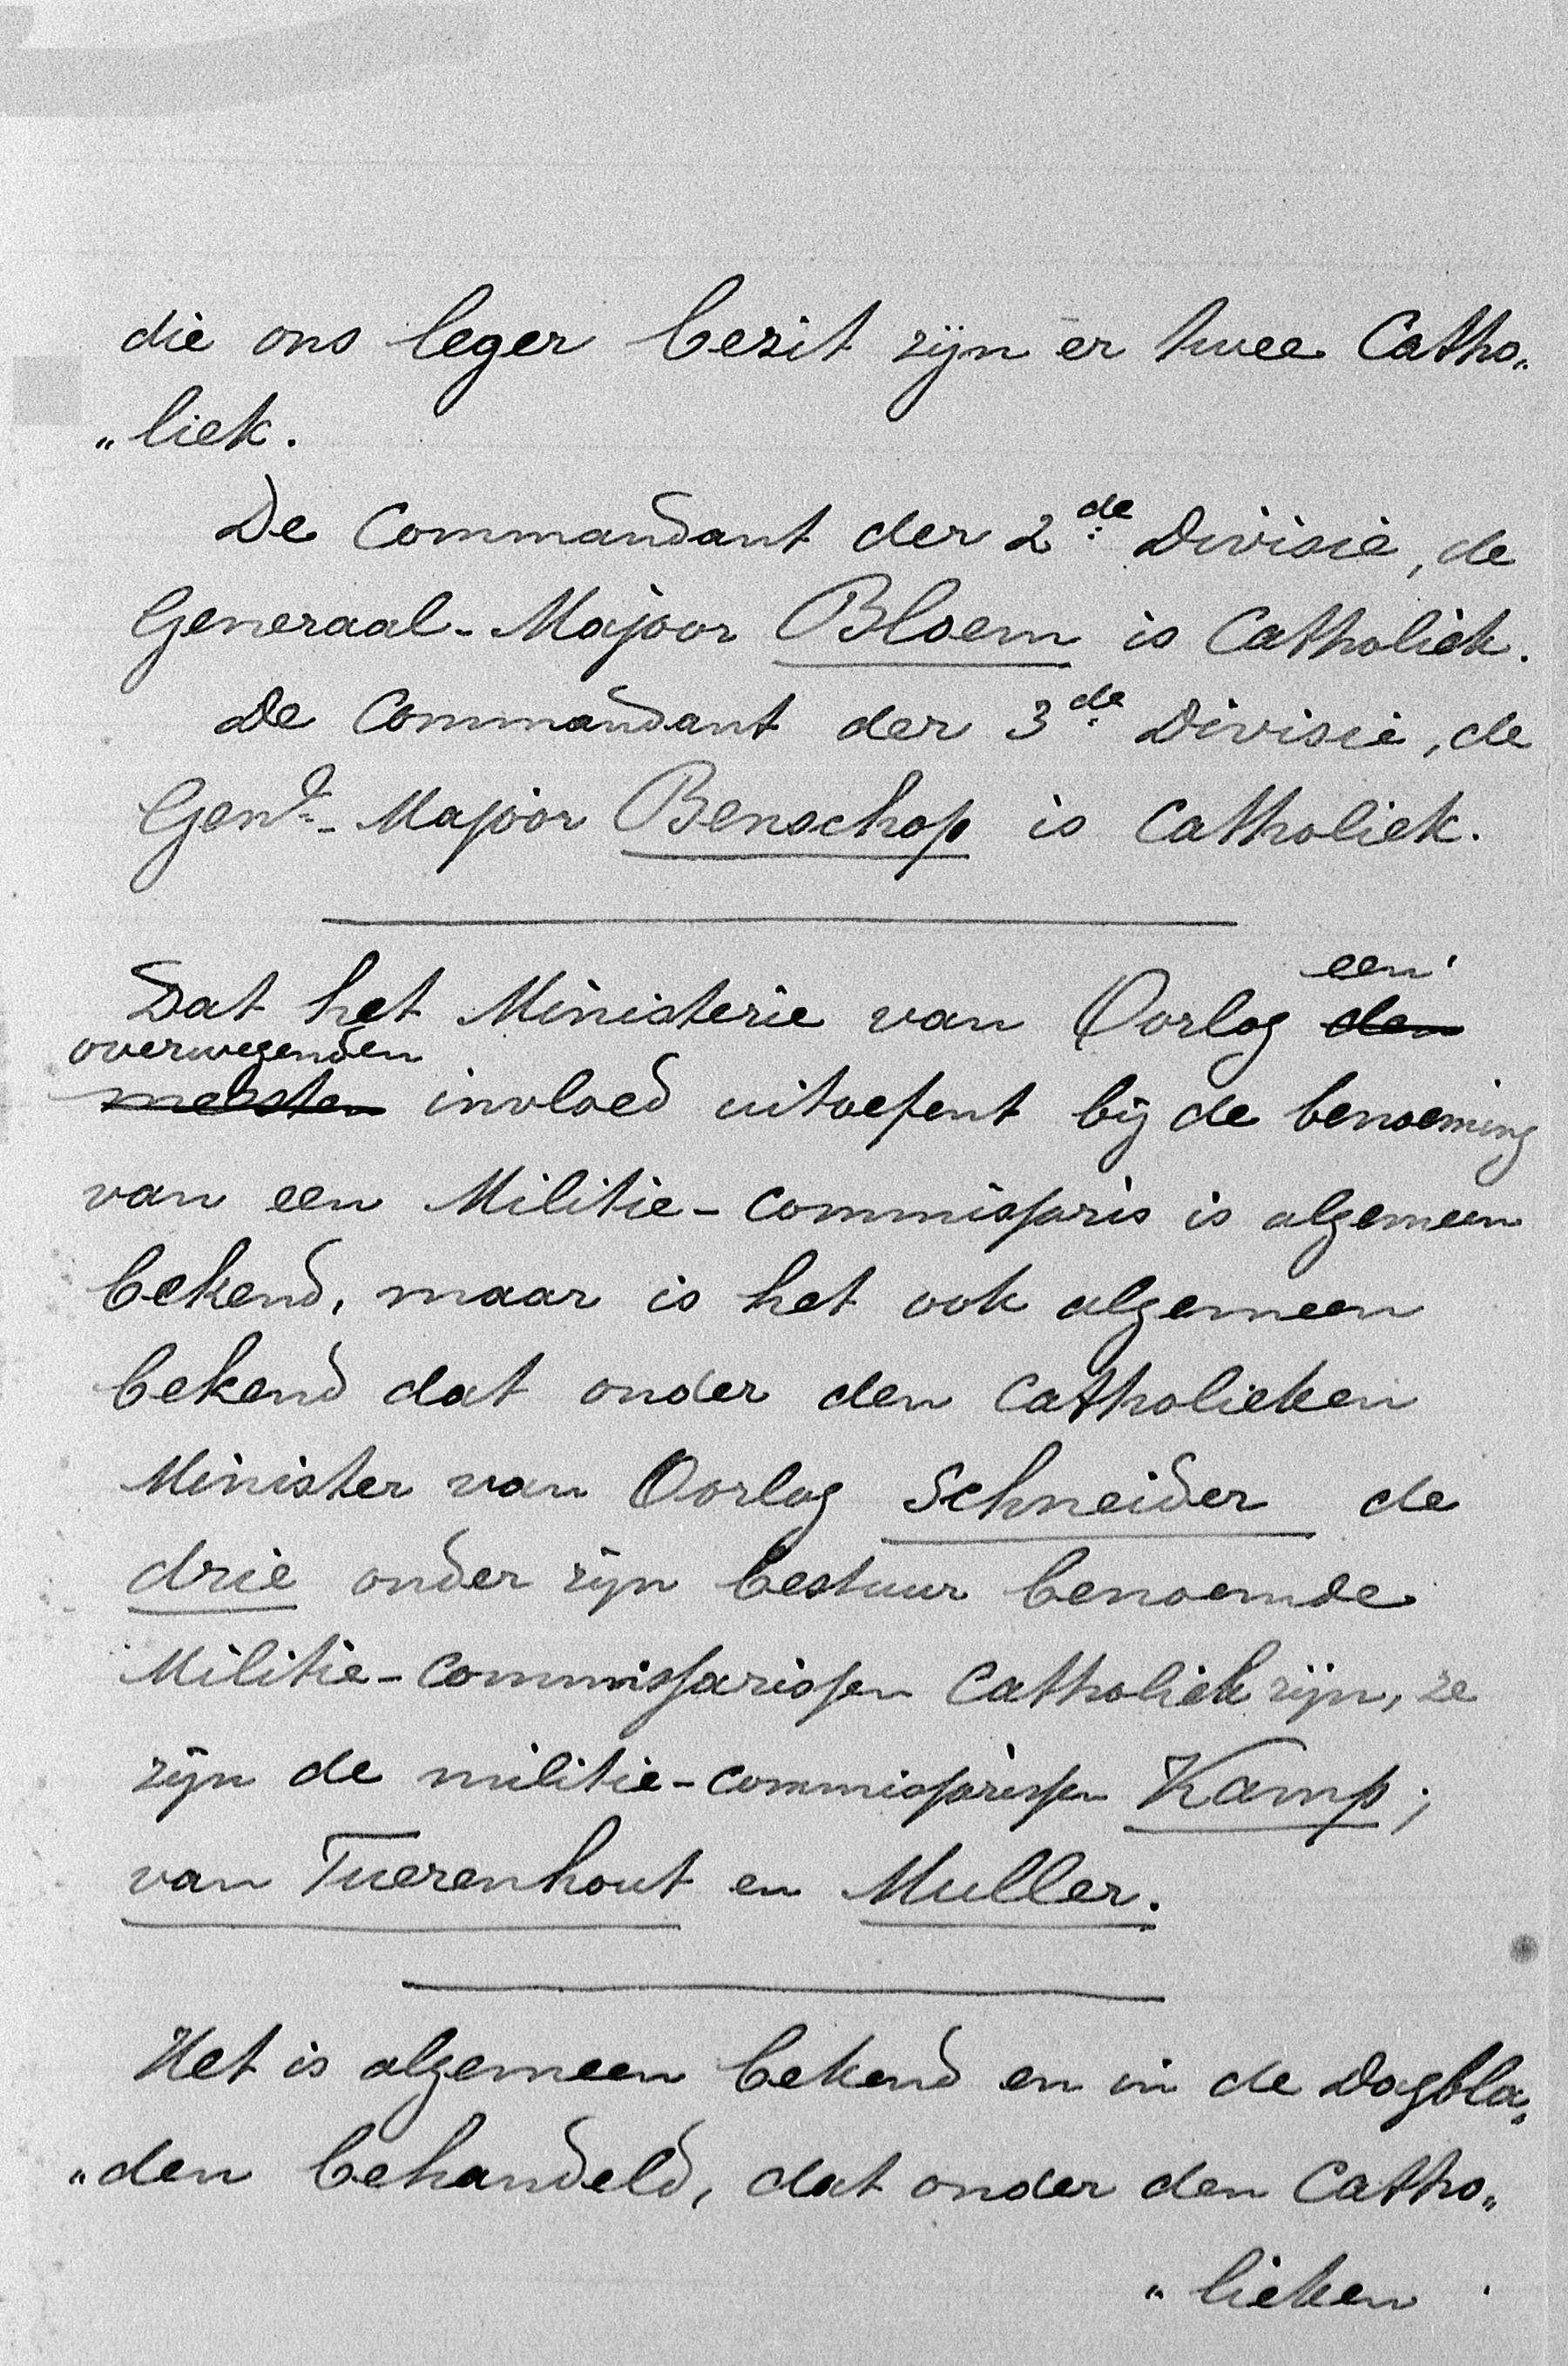 die ons leger bezit zijn er twee Catho„
„liek.
De Commandant der 2de Divisie, de
Generaal-Majoor Bloem is Catholiek.
De Commandant der 3de Divisie, de
Genl-Majoor Benschop is Catholiek.
een
Dat het Ministerie van Oorlog den
overwegenden
meesten invloed uitoefent bij de benoeming
van een Militie-commissaris is algemeen
bekend, maar is het ook algemeen
bekend dat onder den Catholieken
Minister van Oorlog Schneider de
drie onder zijn bestuur benoemde
Militie-commissarissen Catholiek zijn, ze
zijn de militie-commissarissen Kamp;
van Tuerenhout en Muller.
Het is algemeen bekend en in de Dagbla„
„den behandeld, dat onder den Catho„
„lieken